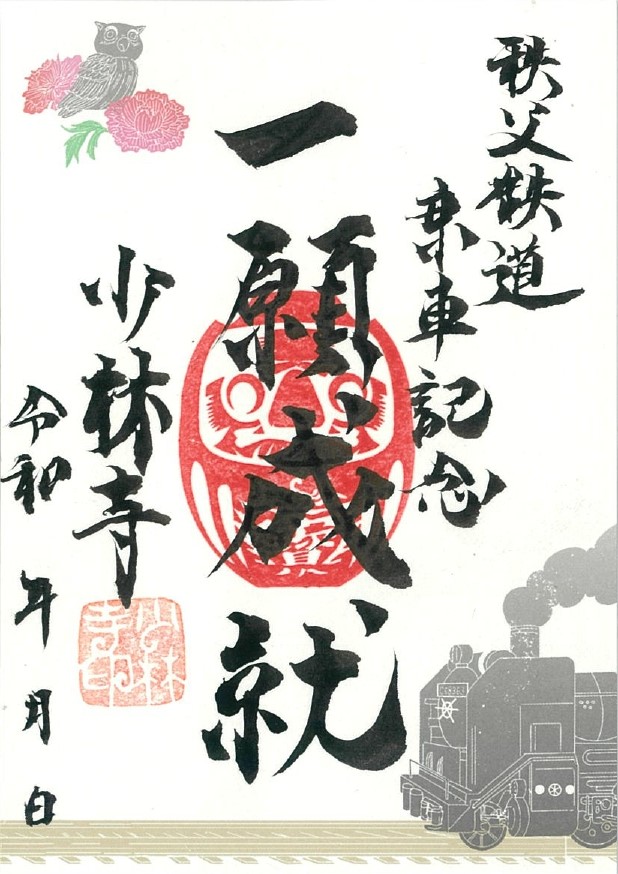 秩父鉄道
乗車記念
一願成就
少林寺
少林寺印
令和 年 月 日
C58363